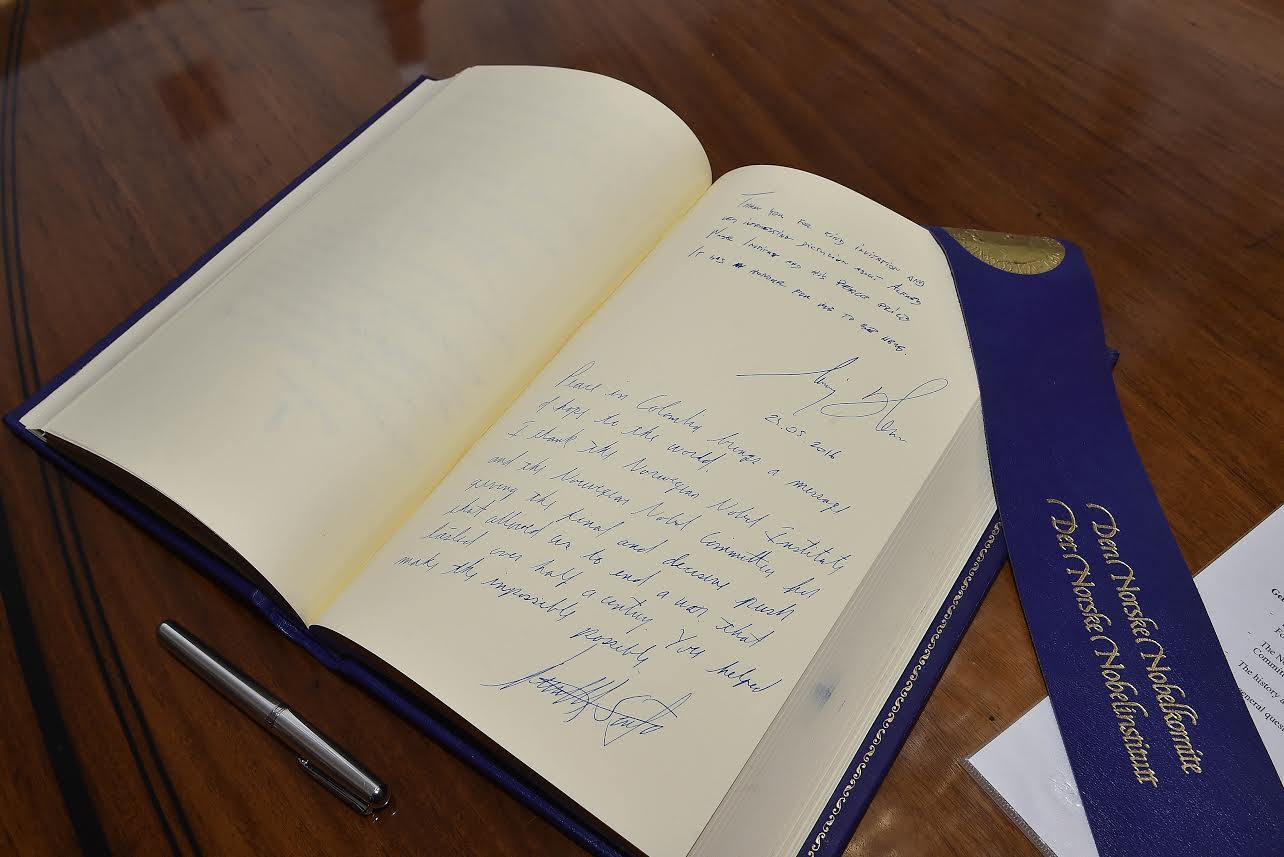 Thank you for kind invitation and
an impressive discussion about Alfred
Nobel Institute and his peace prize
It was an honour for me to be here.
23.05.2016
Peace in Colombia brings a message
of hope to the world.
I thank the Norwegian Nobel Institute
and the Norwegian Nobel Committee for
giving the final and decisive push
that allowed us to end a war that
lasted over half a century. You helped
make the impossible
possible.
Den Norske Nobelkomite
Det Norske Nobelinstitutt
The history
general